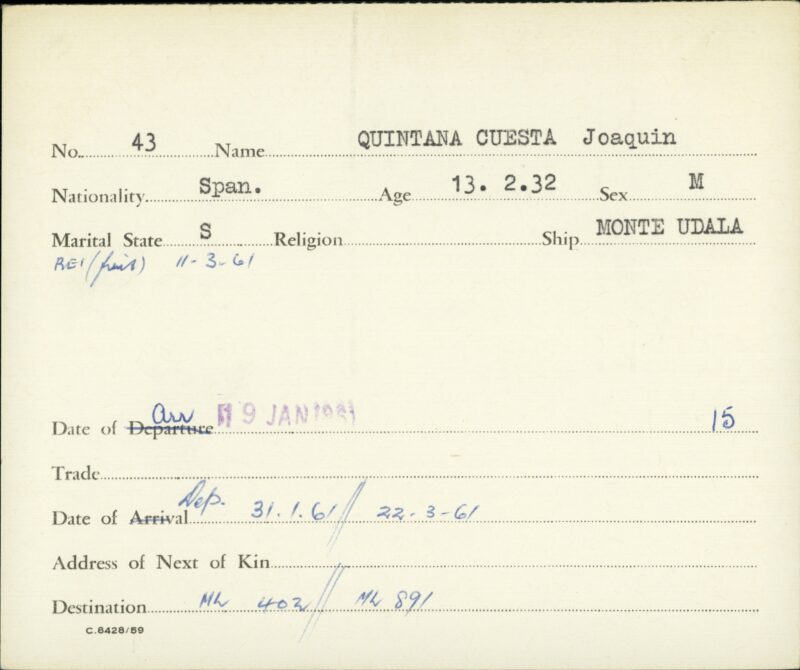 No. 43 Name QUINTANA CUESTA Joaquin
Nationality Span. Age 13. 2.32 Sex M
Marital State S Religion Ship MONTE UDALA
REI (fruit) 11-3-61
Date of Departure Arr 19 JAN 1961 15
Trade
Date of Arrival Dep. 31.1.61 // 22-3-61
Address of Next of Kin
Destination ML 402 // ML 891
C.8428/59